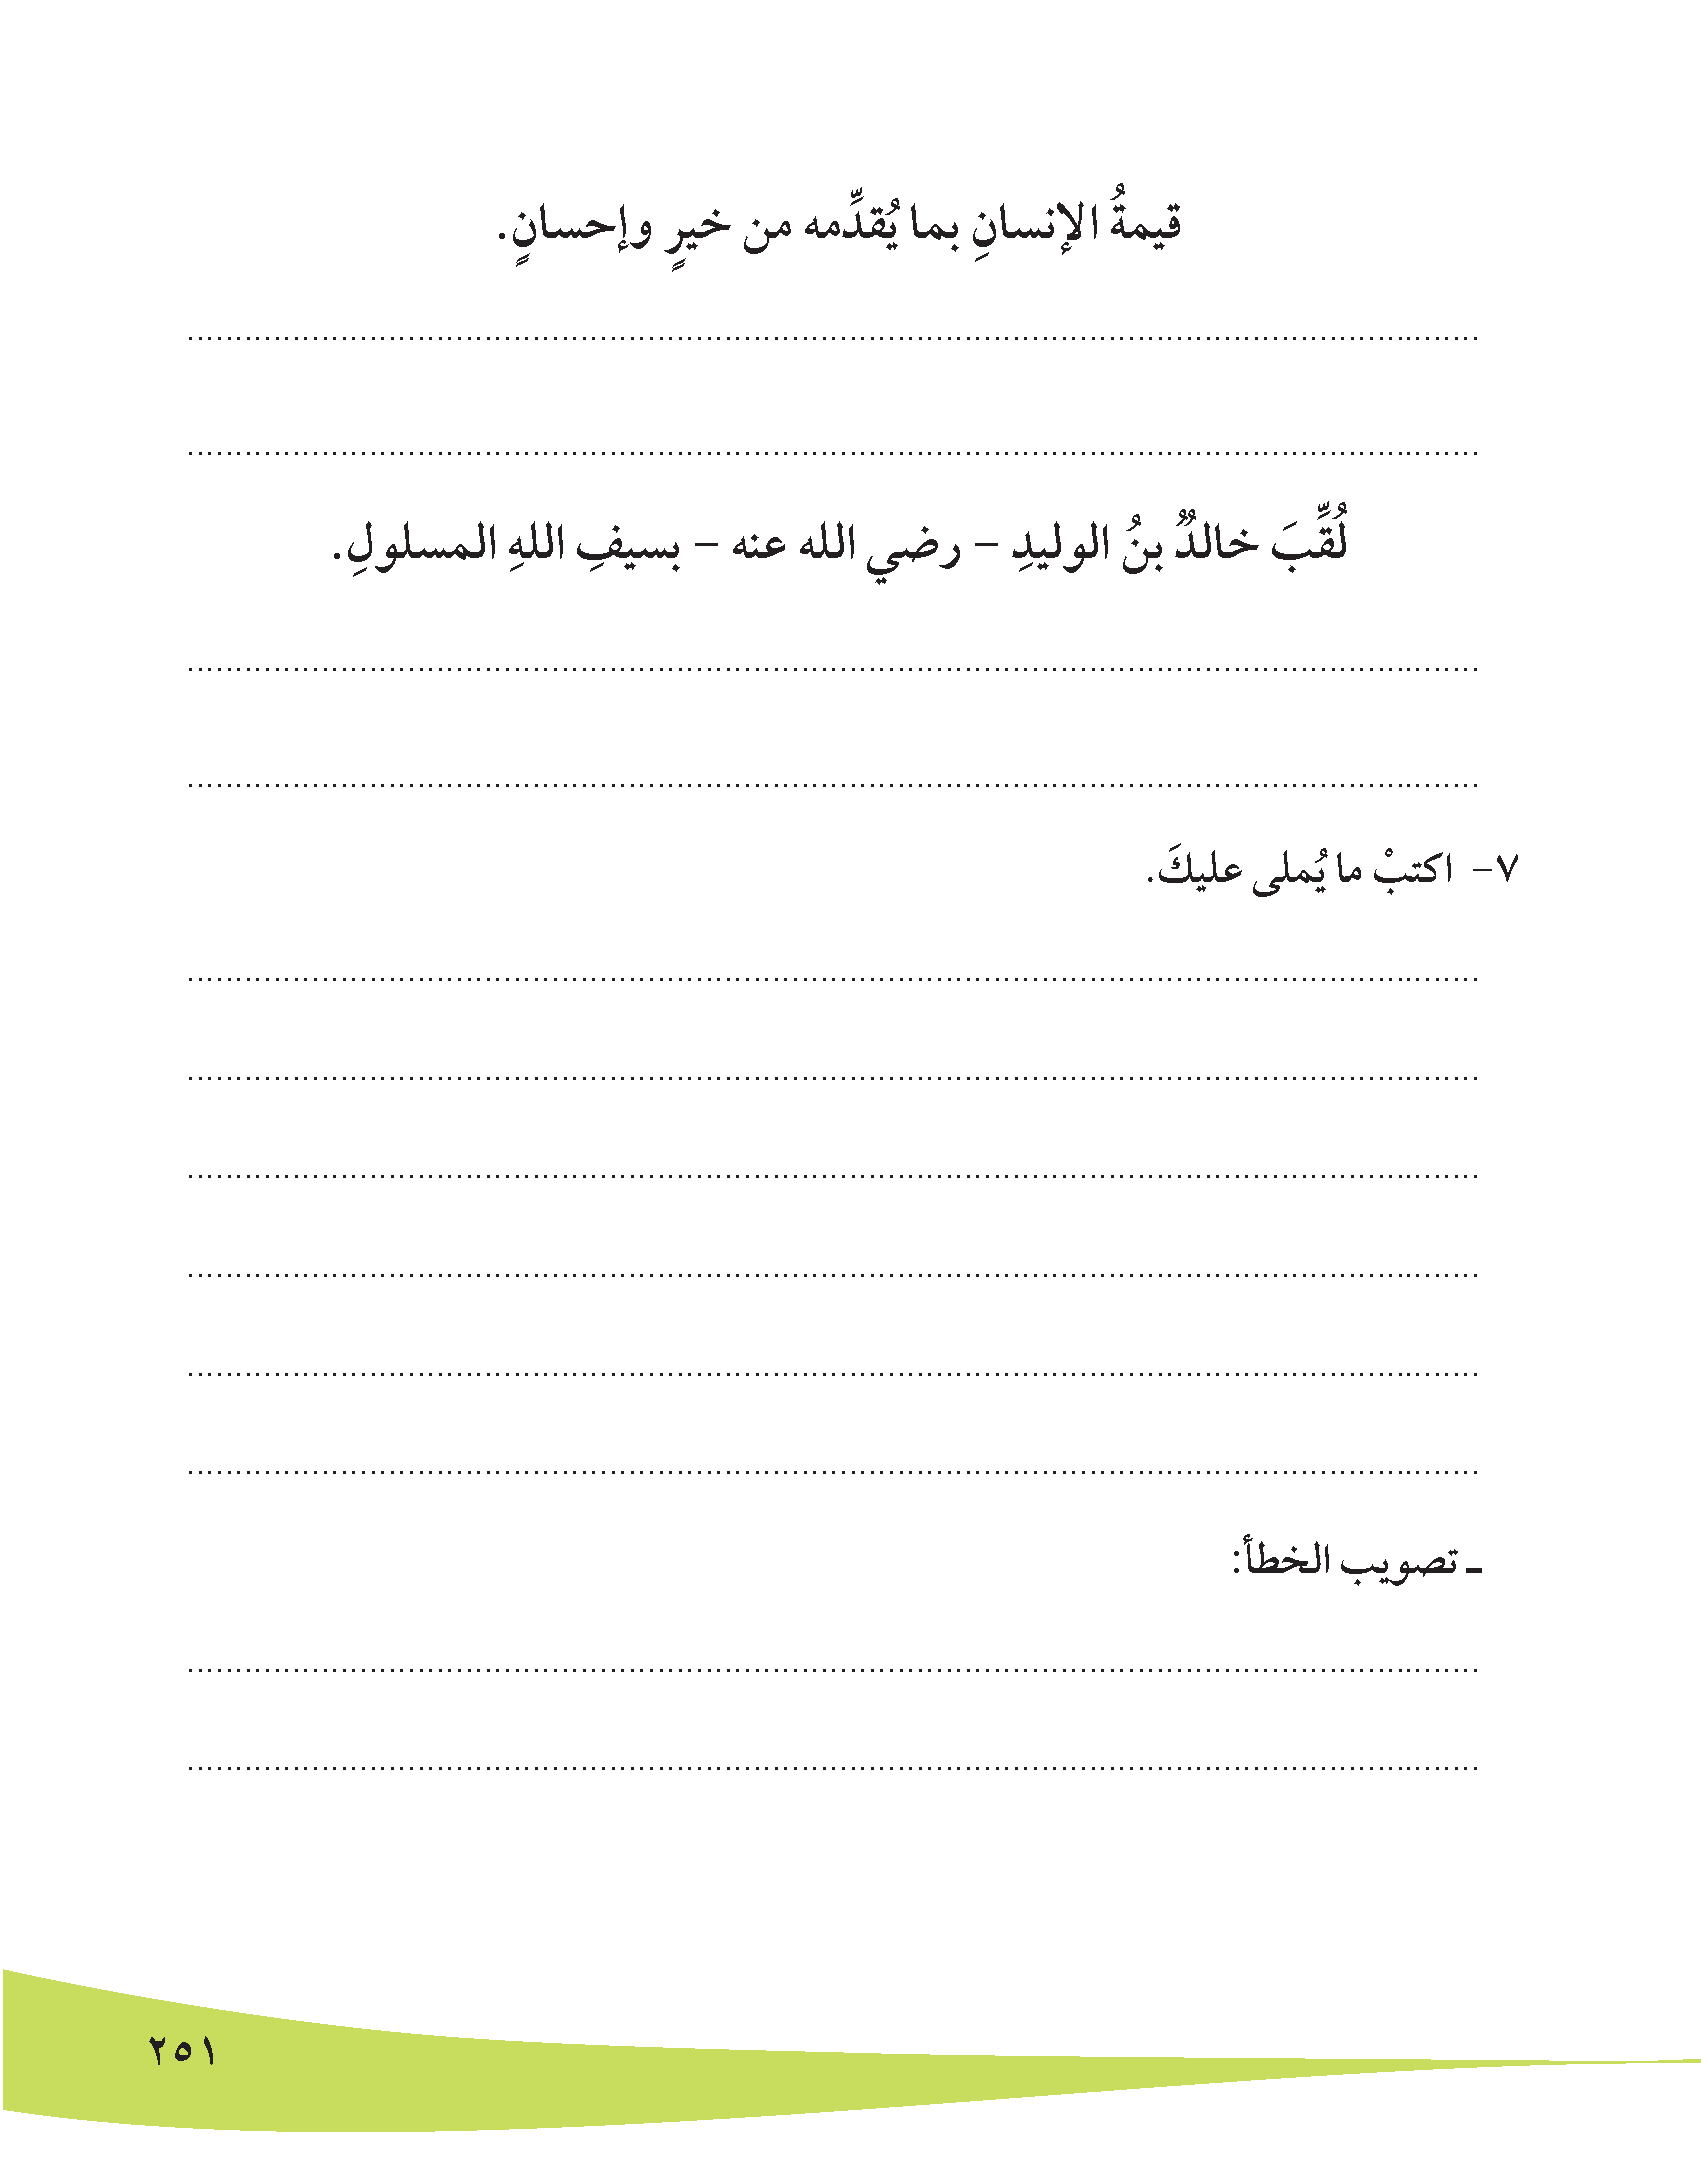 قيمةُ الإنسانِ بما يُقدِّمه من خيرٍ وإحسانٍ.
لُقِّبَ خالدٌ بنُ الوليدِ – رضي الله عنه – بسيفِ اللهِ المسلولِ.
٧– اكتبْ ما يُملى عليكَ.
ـ تصويب الخطأ:
٢٥١